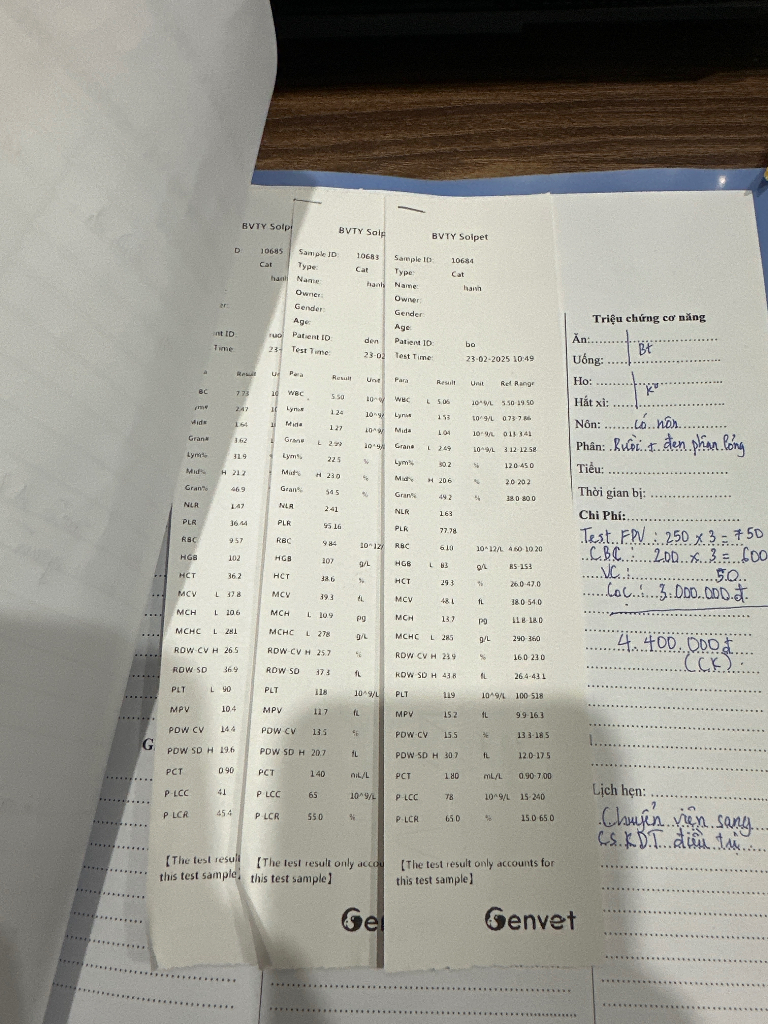 BVTY Solp
D: 10685
Cat
hanh
er:
nt ID: ruo
Time: 23-
Result Un
BC 7.73 10
yms# 2.47 10
Mid# 1.64
Gran# 3.62
Lym% 31.9
Mid% H 21.2
Gran% 46.9
NLR 1.47
PLR 36.44
RBC 9.57
HGB 102
HCT 36.2
MCV L 37.8
MCH L 10.6
MCHC L 281
RDW-CV H 26.5
RDW-SD 36.9
PLT L 90
MPV 10.4
PDW-CV 14.4
PDW-SD H 19.6
PCT 0.90
P-LCC 41
P-LCR 45.4
【The test result
this test sample
BVTY Solp
Sample ID: 10683
Type: Cat
Name: hanh
Owner:
Gender:
Age:
Patient ID: den
Test Time: 23-02
Para Result Unit
WBC 5.50 10^9/
Lym# 1.24 10^9/
Mid# 1.27 10^9/
Gran# L 2.99 10^9/
Lym% 22.5 %
Mid% H 23.0 %
Gran% 54.5 %
NLR 2.41
PLR 95.16
RBC 9.84 10^12/
HGB 107 g/L
HCT 38.6 %
MCV 39.3 fL
MCH L 10.9 pg
MCHC L 278 g/L
RDW-CV H 25.7 %
RDW-SD 37.3 fL
PLT 118 10^9/L
MPV 11.7 fL
PDW-CV 13.5 %
PDW-SD H 20.7 fL
PCT 1.40 mL/L
P-LCC 65 10^9/L
P-LCR 55.0 %
【The test result only accou
this test sample】
Ge
BVTY Solpet
Sample ID: 10684
Type: Cat
Name: hanh
Owner:
Gender:
Age:
Patient ID: bo
Test Time: 23-02-2025 10:49
Para Result Unit Ref Range
WBC L 5.06 10^9/L 5.50-19.50
Lym# 1.53 10^9/L 0.73-7.86
Mid# 1.04 10^9/L 0.13-3.41
Gran# L 2.49 10^9/L 3.12-12.58
Lym% 30.2 % 12.0-45.0
Mid% H 20.6 % 2.0-20.2
Gran% 49.2 % 38.0-80.0
NLR 1.63
PLR 77.78
RBC 6.10 10^12/L 4.60-10.20
HGB L 83 g/L 85-153
HCT 29.3 % 26.0-47.0
MCV 48.1 fL 38.0-54.0
MCH 13.7 pg 11.8-18.0
MCHC L 285 g/L 290-360
RDW-CV H 23.9 % 16.0-23.0
RDW-SD H 43.8 fL 26.4-43.1
PLT 119 10^9/L 100-518
MPV 15.2 fL 9.9-16.3
PDW-CV 15.5 % 13.3-18.5
PDW-SD H 30.7 fL 12.0-17.5
PCT 1.80 mL/L 0.90-7.00
P-LCC 78 10^9/L 15-240
P-LCR 65.0 % 15.0-65.0
【The test result only accounts for
this test sample】
Genvet
Triệu chứng cơ năng
Ăn:
Bt
Uống:
Ho:
Ko
Hắt xì:
Nôn: Có nôn
Phân: Ruồi + đen phân lỏng
Tiểu:
Thời gian bị:
Chi Phí:
Test FPV : 250 x 3 = 750
CBC : 200 x 3 = 600
VC : 50
Cọc : 3.000.000đ
4.400.000đ
(CK)
Lịch hẹn:
Chuyển viện sang
CS.KDT điều trị
G